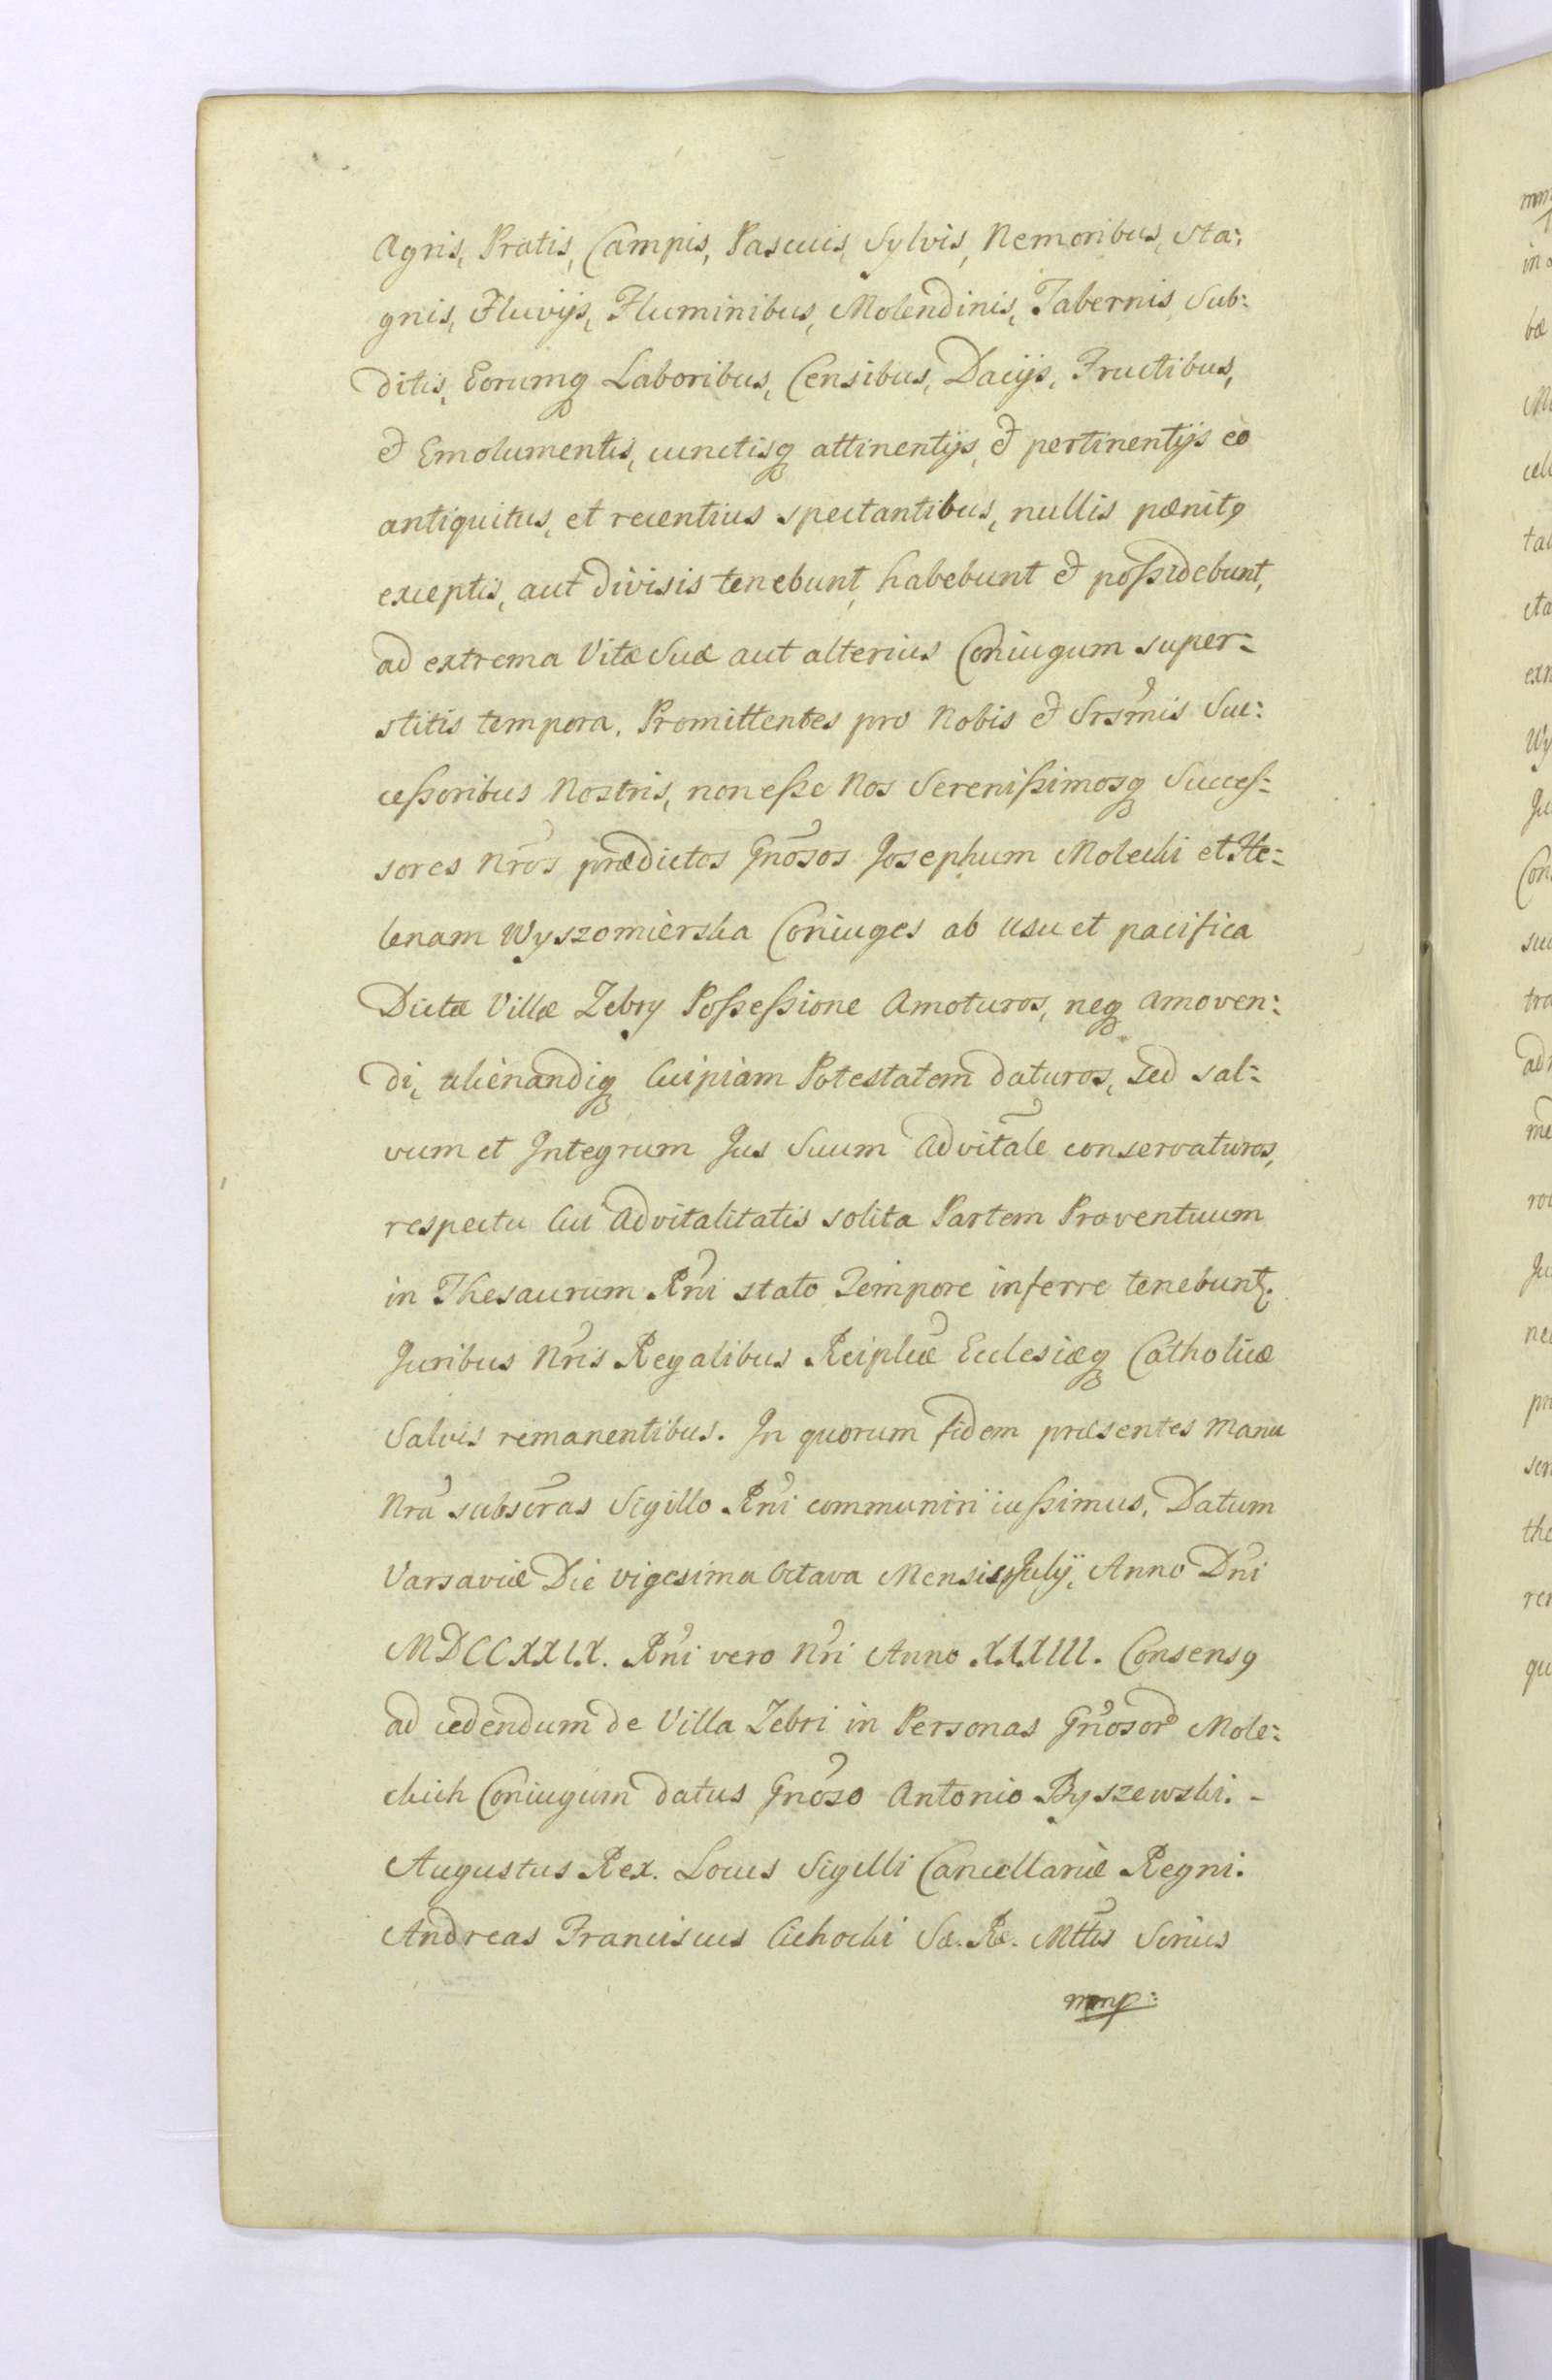 Agris, Pratis, Campis, Pascuis, Sylvis, Nemoribus, Sta:
gnis, Fluvijs, Fluminibus, Molendinis, Tabernis, Sub:
ditis, Eorumq Laboribus, Censibus, Dacijs, Fructibus,
et Emolumentis, cunctisq attinentijs, et pertinentijs eo
antiquitus, et recentius spectantibus, nullis pænitq
exceptis, aut divisis tenebunt, habebunt et poßidebunt,
ad extrema Vitæ Suæ aut alterius Coniugum super:
stitis tempora. Promittentes pro Nobis et Srs̃mis Suc:
ceßoribus Nostris, non eße Nos Sereniſsimosq Succeſ:
sores Nrõs prædictos Gnõsos Josephum Molecki et He:
lenam Wyszomierska Coniuges ab usu et pacifica
Dictæ Villæ Zebry Poßeßione Amoturos, neq Amoven:
di, alienandiq Cuipiam Potestatem daturos, Sed sal:
vum et Integrum Jus Suum Advitale conservaturos,
respectu Cui Advitalitatis solita Partem Proventuum
in Thesaurum Rñi stato Tempore inferre tenebunt.
Juribus Nrĩs Regalibus Reiplcæ Ecclesiæq Catholicæ
Salvis remanentibus. In quorum fidem præsentes Manu
Nrã subscrãs Sigillo Rñi communiri iußimus. Datum
Varsaviæ Die vigesima Octava Mensis Julij, Anno Dñi
MDCCXXIX. Rñi vero Nrĩ Anno XXXIII. Consensq
ad cedendum de Villa Zebri in Personas Gnõsor Mole:
ckich Coniugum datus Gnõso Antonio Byszewski. -
Augustus Rex. Locus Sigilli Cancellariæ Regni.
Andreas Franciscus Cichocki Sæ. Ræ. Mttis Scrius
mmp: